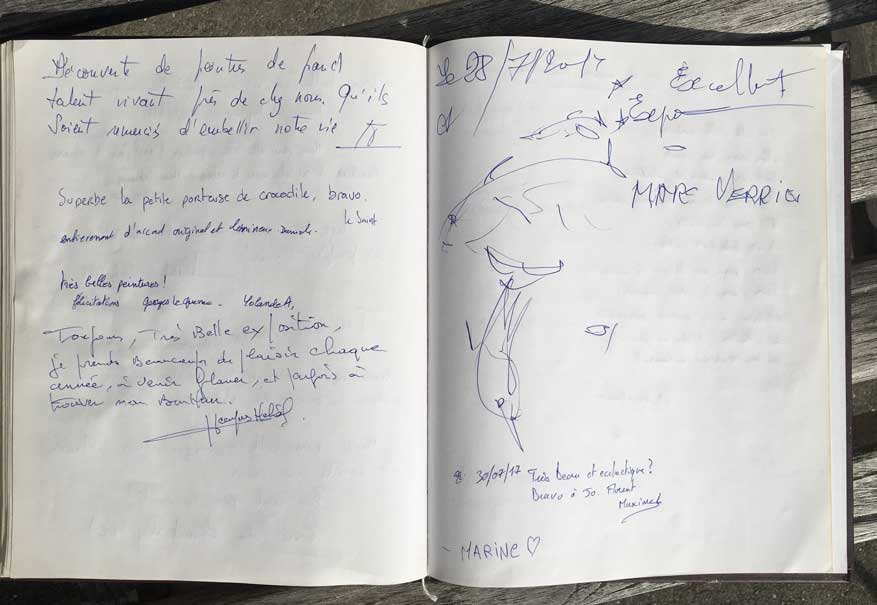 Découverte de peintres de grand
talent vivant près de chez nous. Qu'ils
Soient remerciés d'embellir notre vie
Superbe la petite porteuse de crocodile, bravo.
le Saint
entièrement d'accord original et lumineux.
très belles peintures!
félicitations Georges Yolande A,
Toujours, Très Belle exposition,
je prends Beaucoup de plaisir chaque
année, à venir flaner, et parfois à
trouver mon Bonheur.
Jacques
Le 28/7/2017
Excellent
Expo
MARC VERRIER
30/07/17 Très beau et eclectique?
Bravo à Jo. Florent
Maxime
- MARINE ♡